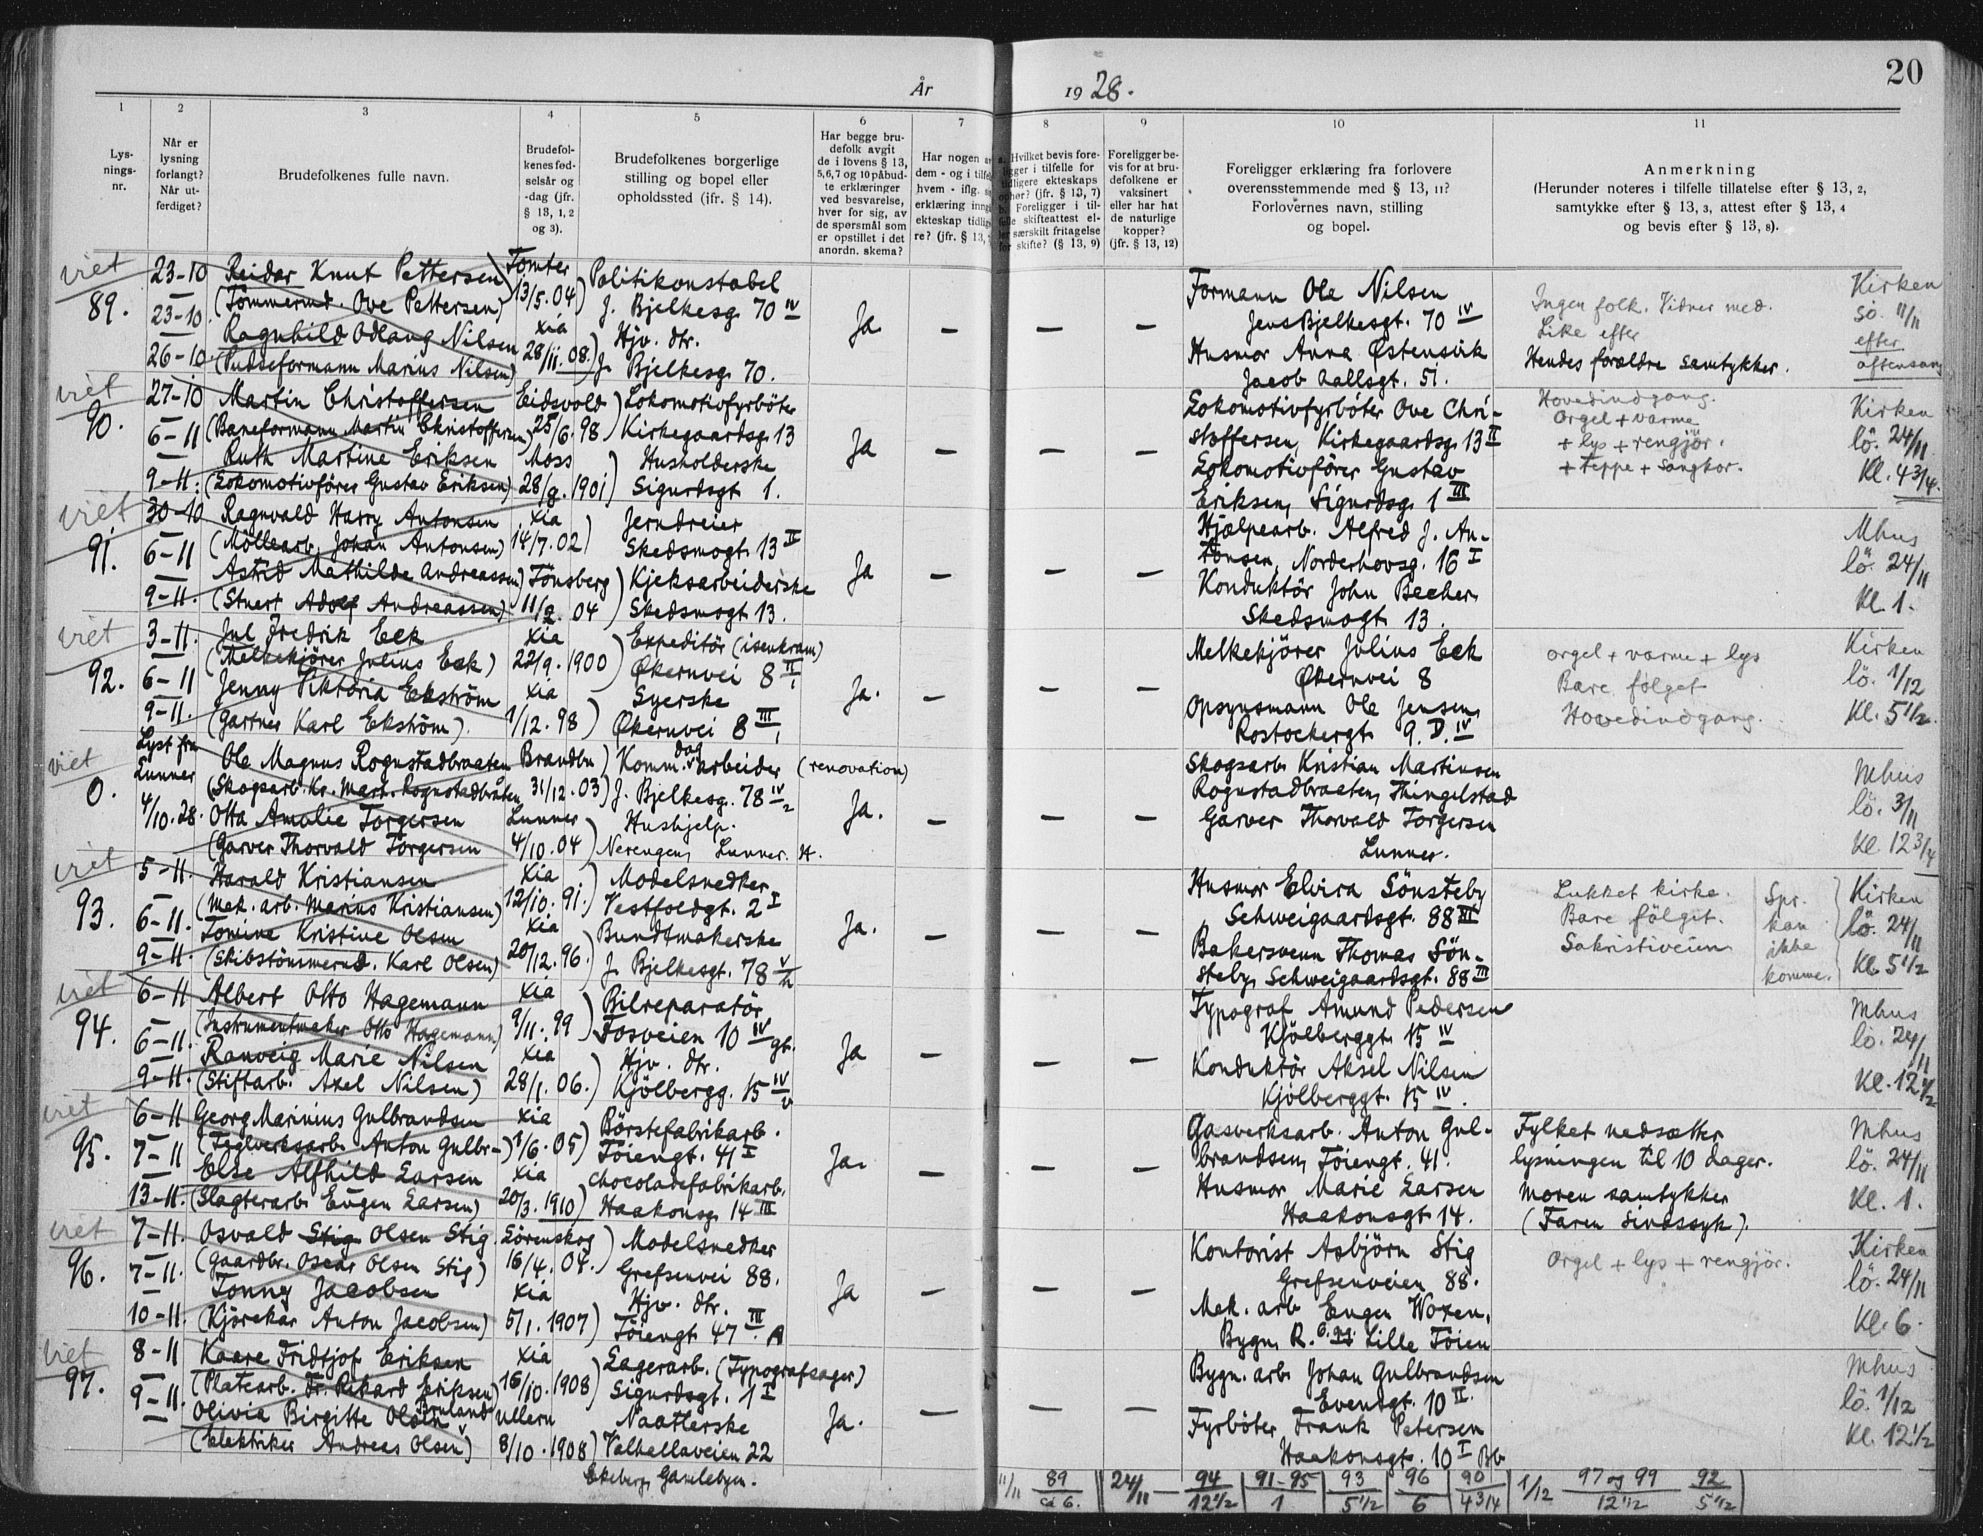 År 1928. 20
1 2 3 4 5 6 7 8 9 10 11
Lys-
nings-
nr.
Når er
lysning
forlangt?
Når ut-
ferdiget?
Brudefolkenes fulle navn.
Brudefol-
kenes fød-
selsår og
-dag (jfr.
§ 13, 1, 2
og 3).
Brudefolkenes borgerlige
stilling og bopel eller
opholdssted (ifr. § 14).
Har begge bru-
defolk avgit
de i lovens § 13,
5,6,7 og 10 påbud-
te erklæringer
ved besvarelse,
hver for sig, av
de spørsmål som
er opstillet i det
anordn. skema?
Har nogen
dem - og i
hvem - iflg.
erklæring
ekteskap
re? (jfr. § 13,
Hvilket bevis fore-
ligger i tilfelle for
tidligere ekteskaps
ophør? (jfr. § 13, 7)
Foreligger i til-
felle skifteattest el-
ler særskilt fritagelse
for skifte? (§ 13, 9)
Foreligger be-
vis for at bru-
defolkene er
vaksinert
eller har hat
de naturlige
kopper?
(jfr. § 13, 12)
Foreligger erklæring fra forlovere
overensstemmende med § 13, 11?
Forlovernes navn, stilling
og bopel.
Anmerkning
(Herunder noteres i tilfelle tillatelse efter § 13, 2,
samtykke efter § 13, 3, attest efter § 13, 4
og bevis efter § 13, 8).
viet
89.
23-10
23-10
26-10
Reidar Knut Pettersen
(Tömmermd. Ove Pettersen)
Ragnhild Odlaug Nilsen
(Pudseformann Marius Nilsen)
Tomter
13/5.04)
Xia
28/11.08.)
Politikonstabel
J. Bjelkesg. 70 IV
Hjv. dtr.
J. Bjelkesg. 70.
Ja - - -
Formann Ole Nilsen
Jens Bjelkesgt. 70 IV
Husmor Anna Østensvik
Jacob Aallsgt. 51.
Ingen folk. Vidner med.
Like efter
Hendes forældre samtykker.
Kirken
sö. 11/11
efter
aftensang
viet
90.
27-10
6-11
9-11.
Martin Christoffersen
(Baneformann Martin Christoffersen)
Ruth Martine Eriksen
(Lokomotivförer Gustav Eriksen)
Eidsvold
25/6.98
Moss
28/9.1901
Lokomotivfyrböter
Kirkegaardsg. 13
Husholderske
Sigurdsgt 1.
Ja - - -
Lokomotivfyrböter Ove Chri-
stoffersen, Kirkegaardsg. 13 II
Lokomotivförer Gustav
Eriksen, Sigurdsg. 1 III
Hovedindgang.
Orgel + varme
+ lys + rengjör.
+ teppe + sangkor.
Kirken
lö. 24/11
Kl. 4 3/4.
viet
91.
30-10
6-11
9-11.
Ragnvald Harry Antonsen
(Möllearb. Johan Antonsen)
Astrid Mathilde Andreassen
(Stuert Adolf Andreassen)
Xia
14/7.02)
Tönsberg
11/9.04
Jerndreier
Skedsmogt. 13 II
Kjeksarbeiderske
Skedsmogt 13.
Ja - - -
Hjælpearb. Alfred J. An-
tonsen, Norderhovsg. 16 I
Konduktör John Becher,
Skedsmogt 13.
Mhus
lö. 24/11
Kl. 1.
viet
92.
3-11.
6-11
9-11.
Jul Fredrik Eek
(Melkekjörer Julius Eek)
Jenny Viktoria Ekström
(gartner Karl Ekström).
Xia
22/9.1900
Xia
1/12.98
Expeditör (isenkram)
Økernvei 8 II
Syerske
Økernvei 8 III,
Ja. - - -
Melkekjörer Julius Eek
Økernvei 8
Opsynsmann Ole Jensen,
Rostockergt. 9. D. IV
orgel + varme + lys
Bare fölget
Hovedindgang.
Kirken
lö. 1/12
Kl. 5 1/2.
viet
0.
Lyst fra
Lunner
4/10.28.
Ole Magnus Rognstadbraaten
(Skogsarb. Kr. Mart. Rognstadbråten
Otta Amalie Torgersen
(Garver Thorvald Torgersen
Brandbu
31/12.03
Lunner
4/10.04
Komm. dag arbeider (renovation)
J. Bjelkesg. 78 IV
Hushjelp.
Nerengen, Lunner. H.
Ja. - - -
Skogsarb. Kristian Martinsen
Rognstadbraaten, Thingelstad
Garver Thorvald Torgersen
Lunner.
Mhus
lö. 3/11
Kl. 12 3/4
viet
93.
5-11.
6-11.
9-11.
Harald Kristiansen
(Mek. arb. Marius Kristiansen)
Tomine Kristine Olsen
(Skibstömmermd. Karl Olsen)
Xia
12/10.91.
Xia
20/12.96.
Modelsnedker,
Vestfoldgt. 2 I
Bundtmakerske
J. Bjelkesgt. 78 V
Ja. - - -
Husmor Elvira Sönsteby
Schweigaardsgt. 88 III
Bakersvenn Thomas Sön-
steby, Schweigaardsgt. 88 III
Lukket kirke.
Bare fölget.
Sakristiveien
Spr.
kan
ikke
komme.
Kirken
lö. 24/11
Kl. 5 1/2
viet
94.
6-11
6-11.
9-11.
Albert Otto Hagemann
(Instrumentmaker Otto Hagemann)
Ranveig Marie Nilsen
(Stiftarb. Axel Nilsen)
Xia
9/11.99
Xia
28/1.06.
Bilreparatör
Fosveien 10 IV gt.
Hjv. dtr.
Kjölbergg. 15 IV
Ja - - -
Typograf Amund Pedersen
Kjölberggt. 15 IV
Konduktör Aksel Nilsen
Kjölberggt. 15 IV.
Mhus
lö. 24/11
Kl. 12 1/2
viet
95.
6-11
7-11
13-11.
Georg Marinius Gulbrandsen
(Teglverksarb. Anton Gulbr-)
Else Alfhild Larsen
(Slagterarb. Eugen Larsen)
Xia
1/6.05
Xia
20/3.1910
Börstefabrikarb.
Töiengt. 41 I
Chocoladefabrikarb.
Haakonsg. 14 III
Ja. - - -
Gasverksarb. Anton Gul-
brandsen, Töiengt. 41.
Husmor Marie Larsen
Haakonsgt 14.
Fylket nedsætter
lysningen til 10 dager.
Moren samtykker
(Faren sindssyk).
Mhus
lö. 24/11
Kl. 1.
viet
96.
7-11.
7-11.
10-11.
Osvald Stig Olsen Stig.
(Gaardbr. Oscar Olsen Stig)
Tonny Jacobsen
(Kjörekar Anton Jacobsen)
Sörenskog
16/4.04.
Xia
5/1.1907
Modelsnedker
Grefsenvei 88.
Hjv. dtr.
Töiengt 47 III. A
Ja - - -
Kontorist Asbjörn Stig
Grefsenveien 88.
Mek. arb. Eugen Woxen,
Bygn. R. Lille Töien
Orgel + lys + rengjör.
Kirken
lö. 24/11
Kl. 6.
viet
97.
8-11
9-11.
Kaare Fridtjof Eriksen
(Platearb. Fr. Rikard Eriksen)
Olivia Birgitte Olsen Bruland
(Elektriker Andreas Olsen)
Xia
16/10.1908
Ullern
8/10.1908
Lagerarb. (Typografsager)
Sigurdsgt. 1 I
Naatlerske
Valhallaveien 22
Ekeberg, Gamlebyen.
Ja. - - -
Bygn. arb. Johan Gulbrandsen
Eventgt. 10 II
Fyrböter Frank Petersen
Haakonsgt. 10 I Bb
Mhus
lö. 1/12
Kl. 12 1/2
11/11 89/cd 6. 24/11 - 94/12 1/2 91-95/1 93/5 1/2 96/6 90/4 3/4 1/12 97 og 99/12 1/2 92/5 1/2